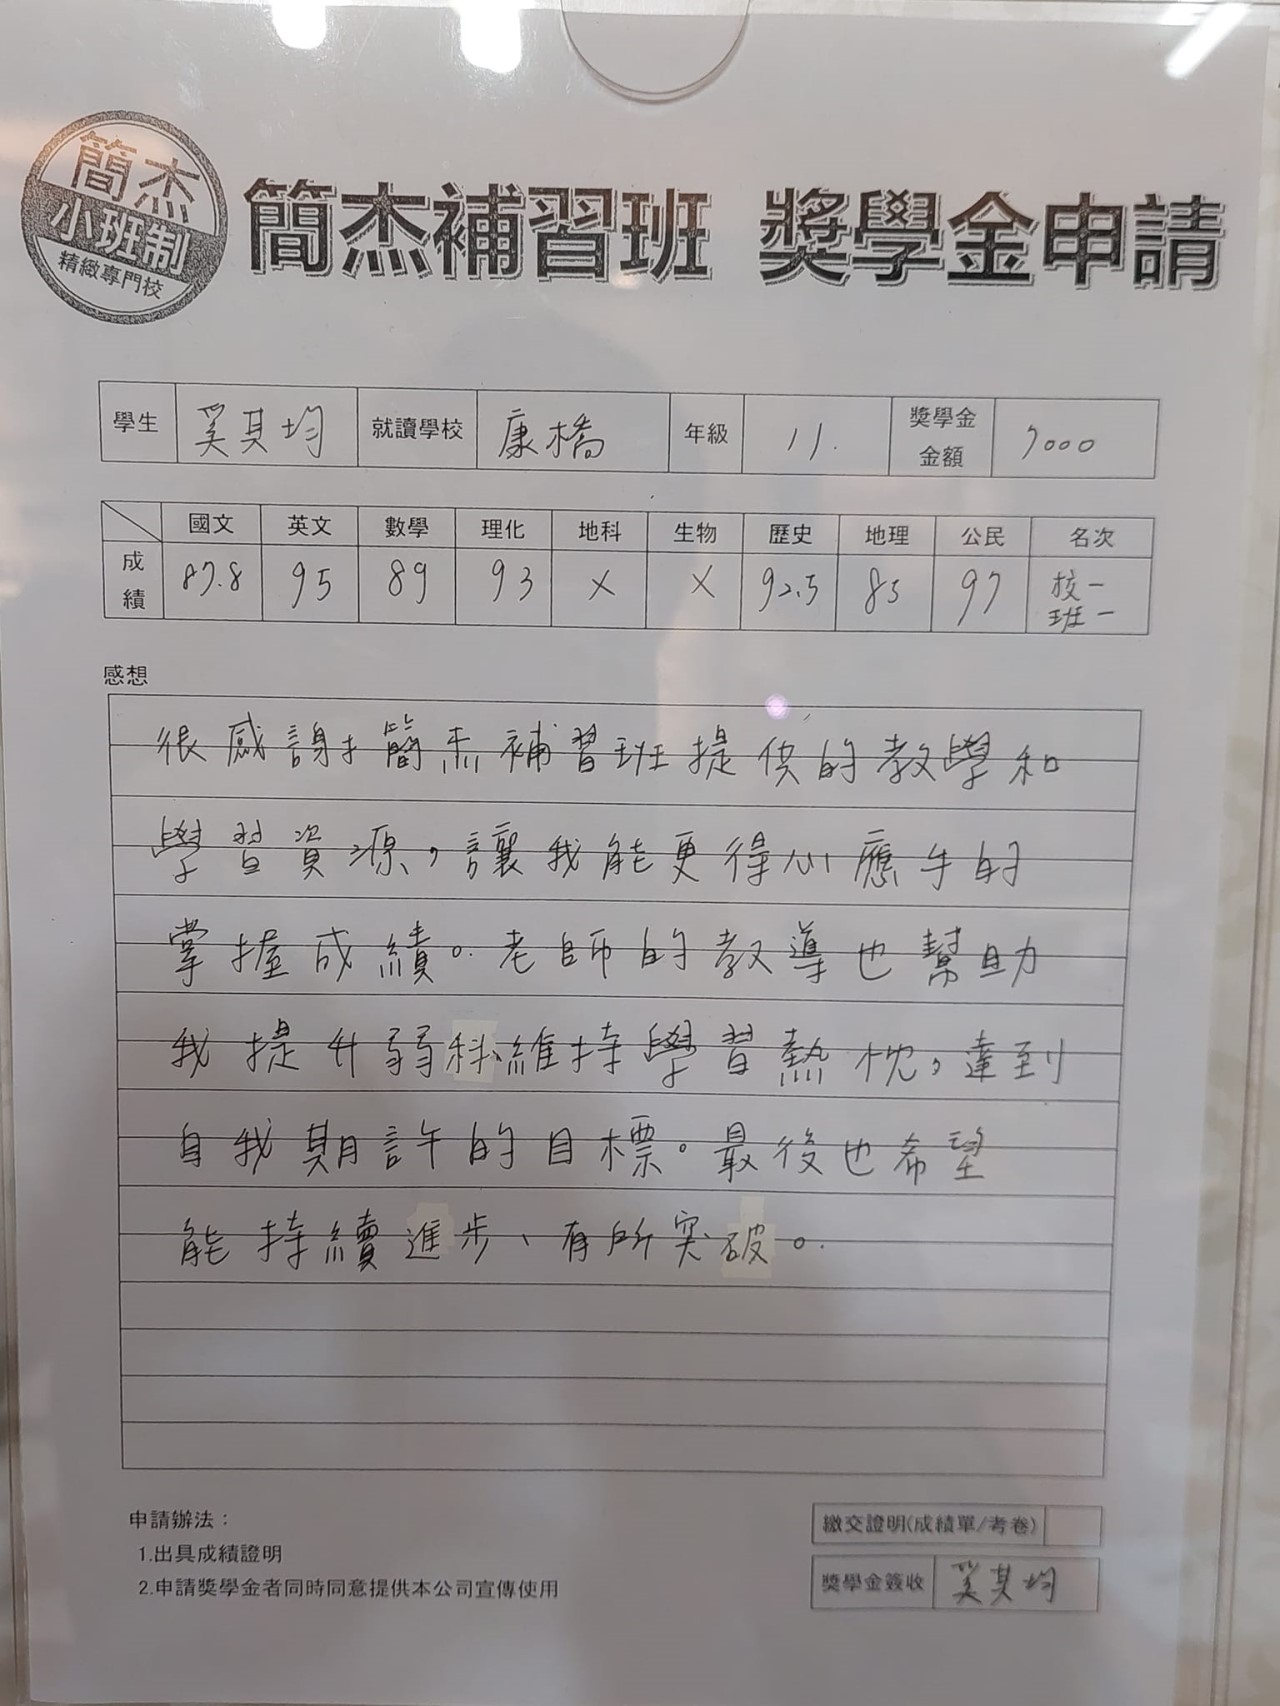 簡杰
小班制
精緻專門校
簡杰補習班 獎學金申請
學生 奚其均 就讀學校 康橋 年級 11. 獎學金金額 7000
國文 英文 數學 理化 地科 生物 歷史 地理 公民 名次
成績 87.8 95 89 93 X X 92.5 85 97 校一 班一
感想
很感謝簡杰補習班提供的教學和
學習資源，讓我能更得心應手的
掌握成績。老師的教導也幫助
我提升弱科維持學習熱忱，達到
自我期許的目標。最後也希望
能持續進步、有所突破。
申請辦法：
1.出具成績證明
2.申請獎學金者同時同意提供本公司宣傳使用
繳交證明(成績單/考卷)
獎學金簽收 奚其均